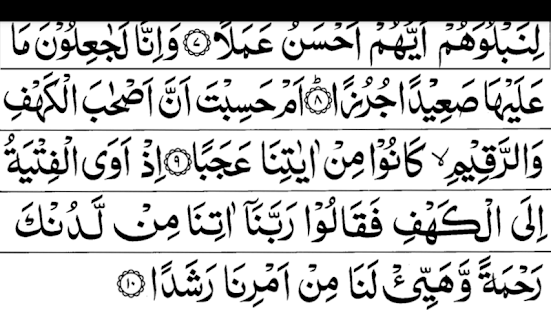 لِنَبْلُوَهُمْ اَيُّهُمْ اَحْسَنُ عَمَلًا ﴿۷﴾ وَاِنَّا لَجٰعِلُوْنَ مَا
عَلَيْهَا صَعِيْدًا جُرُزًا ﴿۸﴾ؕ اَمْ حَسِبْتَ اَنَّ اَصْحٰبَ الْكَهْفِ
وَالرَّقِيْمِ ۙ كَانُوْا مِنْ اٰيٰتِنَا عَجَبًا ﴿۹﴾ اِذْ اَوَى الْفِتْيَةُ
اِلَى الْكَهْفِ فَقَالُوْا رَبَّنَاۤ اٰتِنَا مِنْ لَّدُنْكَ
رَحْمَةً وَّهَيِّئْ لَنَا مِنْ اَمْرِنَا رَشَدًا ﴿۱۰﴾